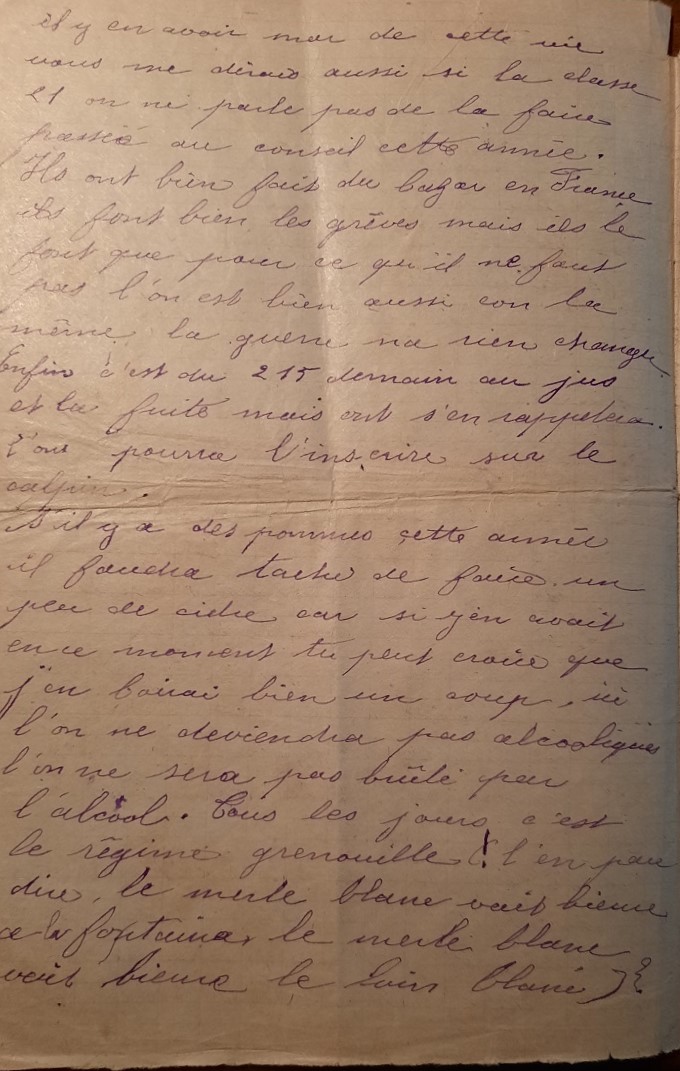 il y en avoir mar de cette vie
vous me dirais aussi si la classe
21 on ne parle pas de la faire
passé au conseil cette année.
Ils ont bien fait du bazar en France
ils font bien les grèves mais ils le
font que pour ce qu'il ne faut
pas l'on est bien aussi con la
même, la guerre na rien changé.
Enfin c'est du 215 demain au jus
et la fuite mais ont s'en rappelera.
l'on pourra l'inscrire sur le
calpin.
S'il y a des pommes cette année
il faudra taché de faire un
peu de cidre car si y'en avait
en ce moment tu peut croire que
j'en boirai bien un coup, ici
l'on ne deviendra pas alcooliques
l'on ne sera pas brûlé par
l'alcool. Tous les jours c'est
le régime grenouille (! l'en peu
dire, le merle blanc vait bienne
a la fontaine, le merle blanc
vait bienne le blanc)